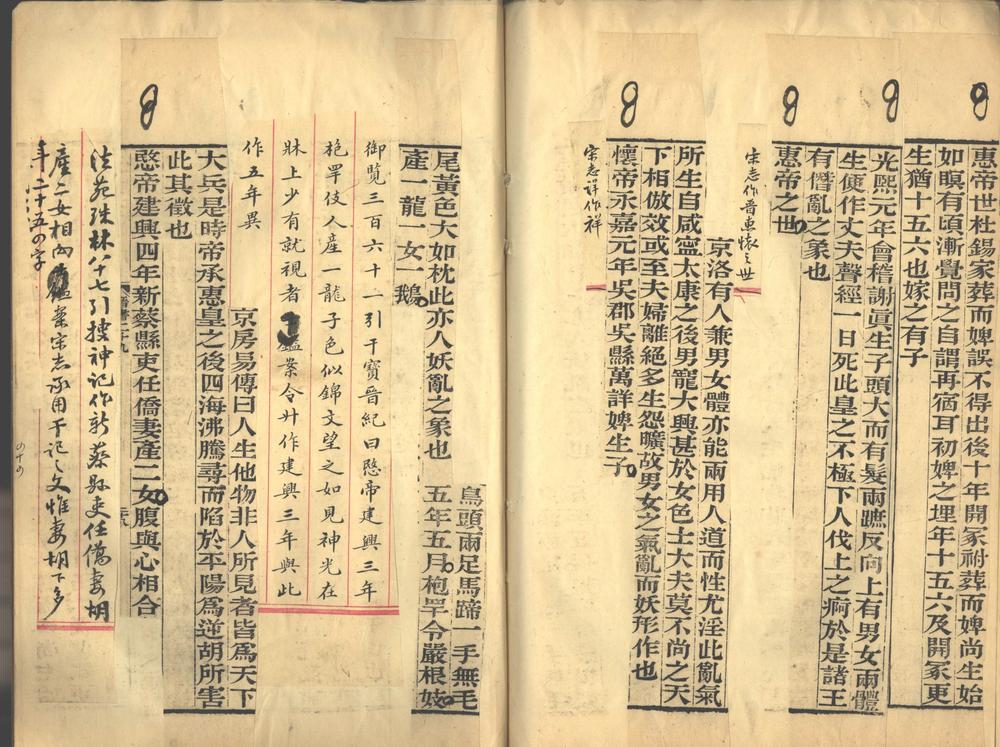 惠帝世杜錫家葬而婢誤不得出後十年開冢祔葬而婢尚生始
如瞑有頃漸覺問之自謂再宿耳初婢之埋年十五六及開冢更
生猶十五六也嫁之有子
光熙元年會稽謝眞生子頭大而有髮兩蹠反向上有男女兩體
生便作丈夫聲經一日死此皇之不極下人伐上之痾於是諸王
有僭亂之象也
惠帝之世
宋志作晉惠懷之世
京洛有人兼男女體亦能兩用人道而性尤淫此亂氣
所生自咸寧太康之後男寵大興甚於女色士大夫莫不尚之天
下相倣效或至夫婦離絕多生怨曠故男女之氣亂而妖形作也
懷帝永嘉元年吳郡吳縣萬詳婢生子
宋志詳作祥
鳥頭兩足馬蹄一手無毛
尾黃色大如枕此亦人妖亂之象也
五年五月枹罕令嚴根妓
產一龍一女一鵝
御覽三百六十一引干寶晉紀曰愍帝建興三年
枹罕伎人產一龍子色似錦文望之如見神光在
牀上少有就視者鑑案令升作建興三年與此
作五年異
京房易傳曰人生他物非人所見者皆爲天下
大兵是時帝承惠皇之後四海沸騰尋而陷於平陽爲逆胡所害
此其徵也
愍帝建興四年新蔡縣吏任僑妻產二女腹與心相合
法苑珠林八十七引搜神記作新蔡縣吏任僑妻胡
產二女相向鑑案宋志承用干記之文惟妻胡下多
年二十五の字